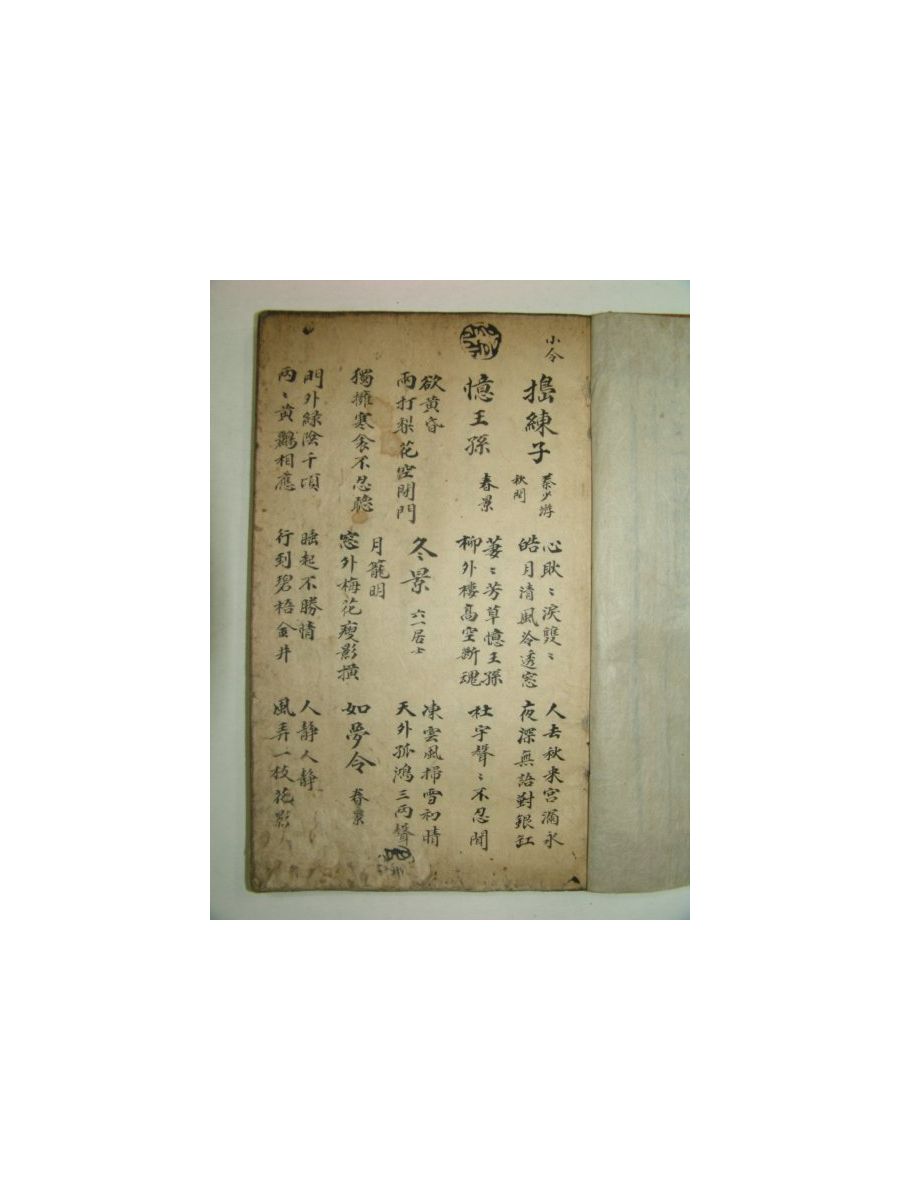 小令
搗練子
秦少游
秋閨
心耿〻淚雙〻
皓月清風冷透窓
人去秋来宮漏永
夜深無語對銀釭
憶王孫
春景
萋〻芳草憶王孫
柳外樓高空斷魂
杜宇聲〻不忍聞
欲黃昏
雨打梨花空閉門
冬景
六一居士
凍雲風掃雪初晴
天外孤鴻三兩聲
獨擁寒衾不忍聽
月籠明
窓外梅花瘦影橫
如夢令
春景
門外綠陰千頃
兩〻黃鸝相應
睡起不勝情
行到碧梧金井
人静人静
風弄一枝花影